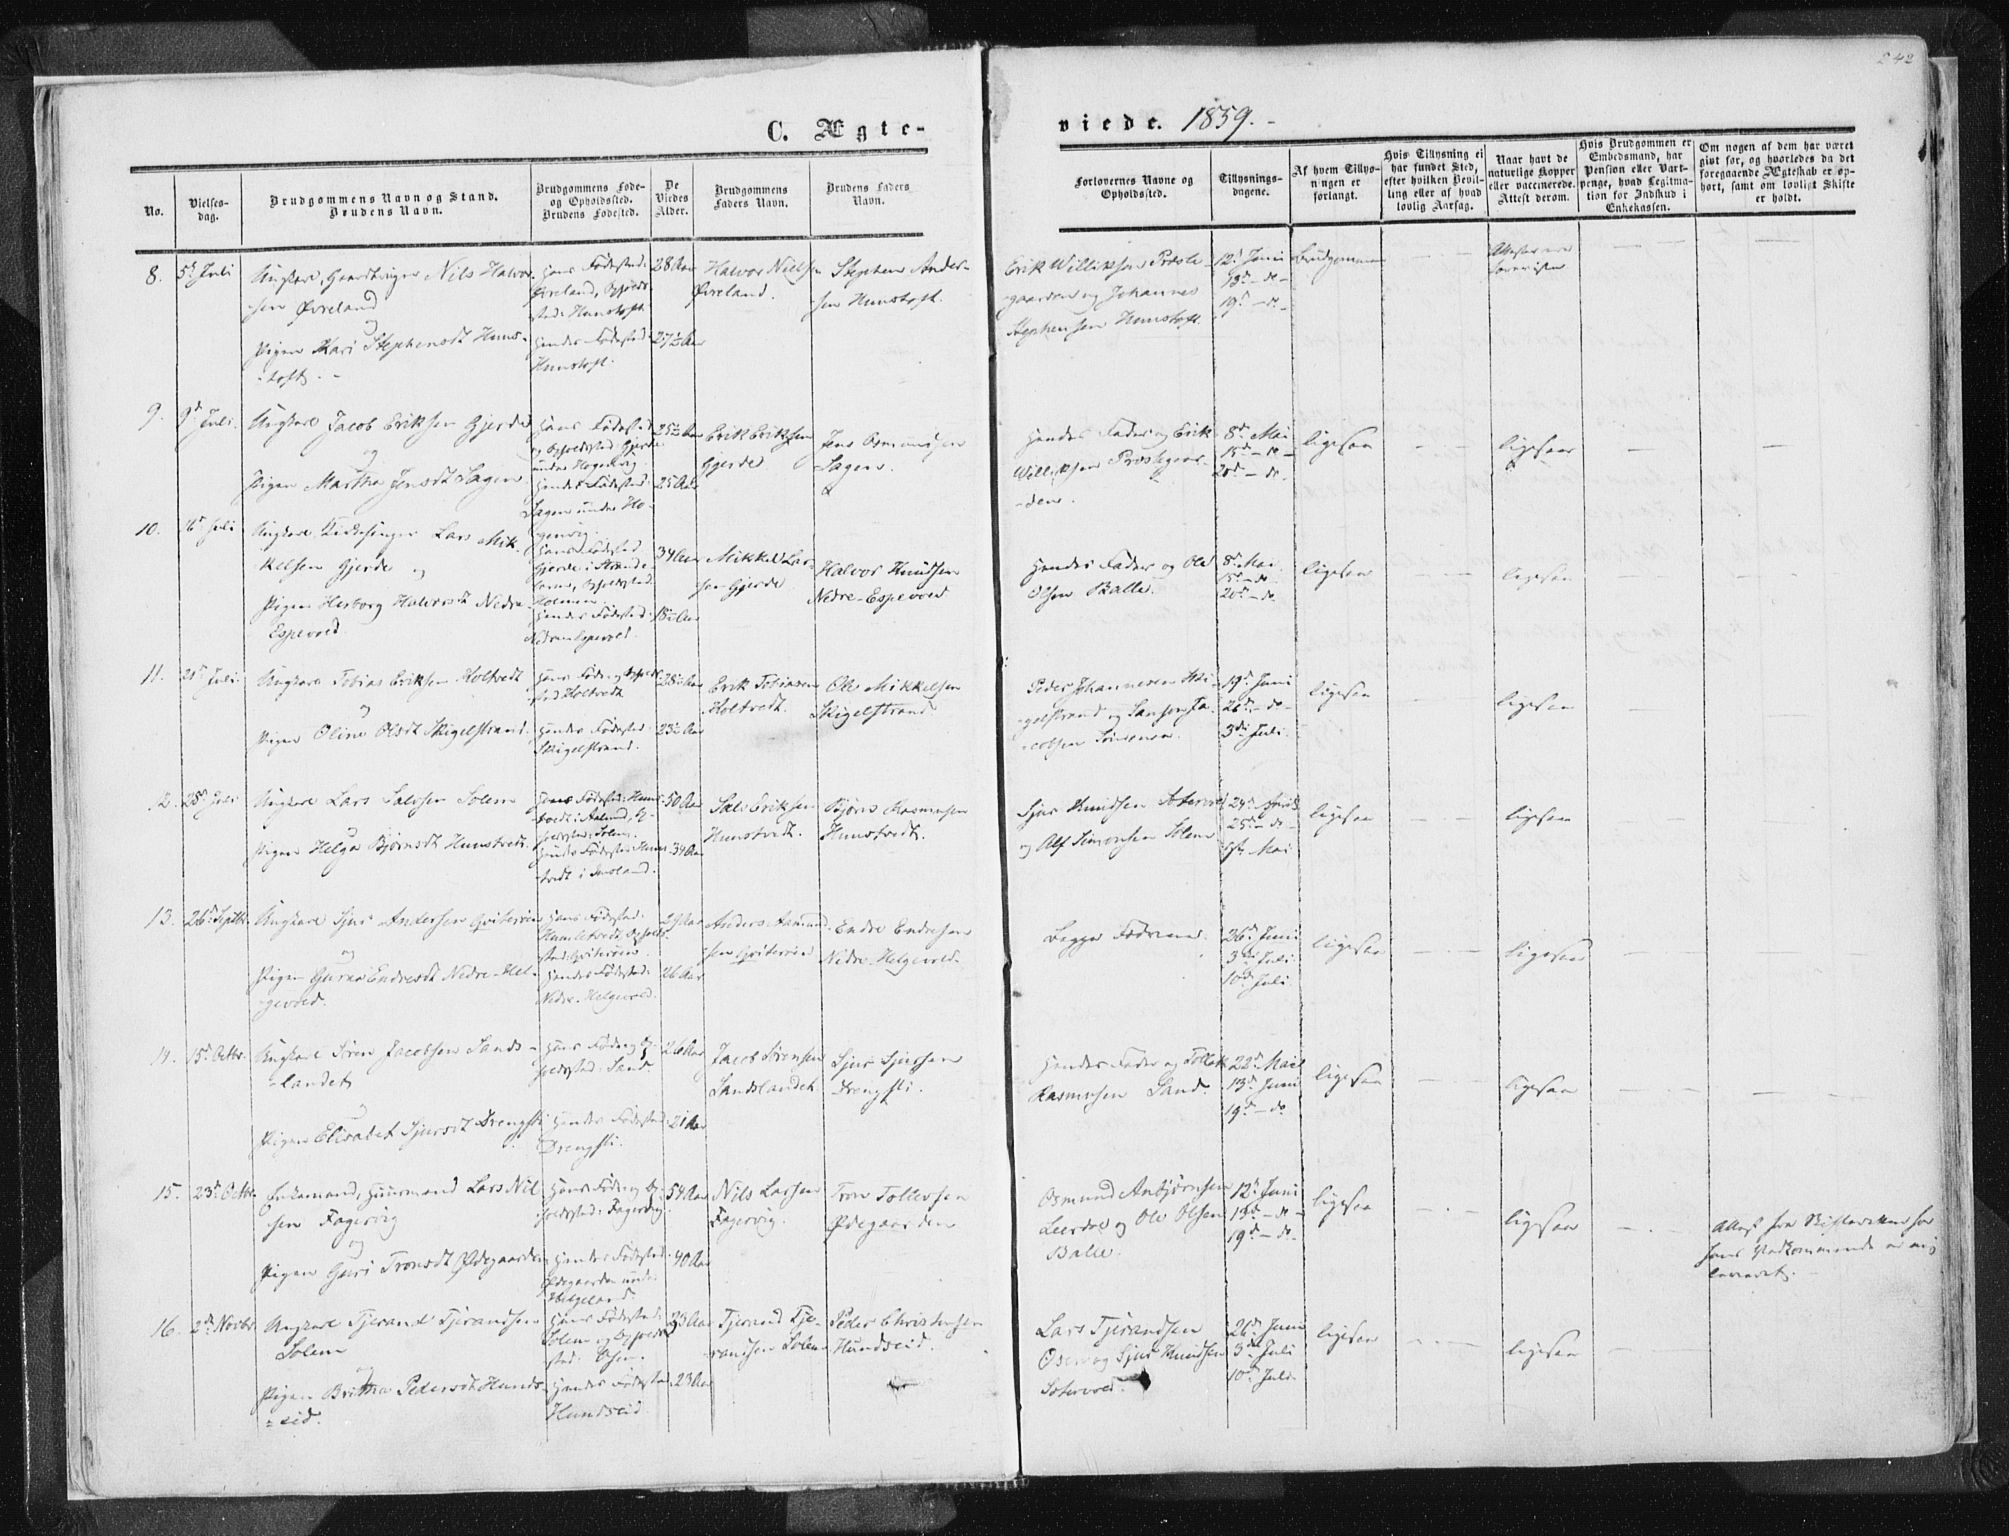 242
C. Ægte-
viede. 1859.-
No.
Vielses-
dag.
Brudgommens Navn og Stand.
Brudens Navn.
Brudgommens Føde-
og Opholdssted.
Brudens Fødested.
De
Viedes
Alder.
Brudgommens
Faders Navn.
Brudens Faders
Navn.
Forlovernes Navne og
Opholdssted.
Tillysnings-
dagene.
Af hvem Tillys-
ningen er
forlangt.
Hvis Tillysning ei
har fundet Sted,
efter hvilken Bevil-
ling eller af hvad
lovlig Aarsag.
Naar havt de
naturlige Kopper
eller vaccinerede.
Attest derom.
Hvis Brudgommen er
Embedsmand, har
Pension eller Vart-
penge, hvad Legitima-
tion for Indskud i
Enkekassen.
Om nogen af dem har været
givt før, og hvorledes da det
foregaaende Ægteskab er op-
hørt, samt om lovligt Skifte
er holdt.
8.
5t Juli
Ungkarl, Gaardbruger Nils Halvor-
sen Øvreland
og
Pigen Kari Stephensdt Huns-
toft. -
Hans Fødested:
Øvreland, Opholds
sted: Hunstoft.
Hendes Fødested:
Hunstoft.
28 Aar
27½ Aar
Halvor Nielsen
Øvreland.
Stephen Anders-
sen Hunstoft.
Erik Williksen Præste-
gaarden og Johannes
Stephensen Hunstoft.
12t Juni
13d - do -
19d - do -
Brudgommen
9.
9d Juli.
Ungkarl Jacob Eriksen Gjerde
og
Pigen Martha Jensdt Sagen
Hans Fødested
og Opholdssted Gjerde
under Hogenvig.
Hendes Fødested
Sagen under Ho-
genvig.
25½ Aar
25 Aar
Erik Eriksen
Gjerde
Jens Osmundsen
Sagen.
Hendes Fader og Erik
Williksen Præstegaar-
den.
8d Mai
15d - do -
20d - do.
ligesaa
ligesaa
10.
Juli
Ungkarl Kirkesanger Lars Mik-
kelsen Gjerde og
Pigen Herborg Halvorsdt Nedre-
Espevold.
Hans Fødested
Gjerde i Strande-
barm, Opholdssted
Holmen.
Hendes Fødested:
Nedre Espevold.
34 Aar
18½ Aar
Mikkel Lar-
sen Gjerde
Halvor Knudsen
Nedre-Espevold
Hendes Fader og Ole
Olsen Balle.
8d Mai
15d - do.
20d - do.
ligesaa
ligesaa
11.
21d Juli.
Ungkarl Tobias Eriksen Holtvedt
og
Pigen Oline Olsdt Skigelstrand.
Hans Føde og Opholds-
sted Holtvedt
Hendes Fødested:
Skigelstrand.
28½ Aar
23½ Aar
Erik Tobiasen
Holtvedt.
Ole Mikkelsen
Skigelstrand
Peder Johannesen Ski-
gelstrand og Samson Ja-
cobsen
19d Juni
26d - do -
3die Juli.
ligesaa
ligesaa
12.
28d Juli
Ungkarl Lars Salvesen Solem
og
Pigen Helga Bjørnsdt Hunstvedt.
50 Aar
34 Aar
Eriksen
Hunstvedt.
Bjørn Rasmusen
Hunstvedt.
Sjur Knudsen Sotevold
og Alf Simonsen Solem
24d April
25d - do -
1ste Mai
ligesaa
ligesaa
13.
26d Septbr.
Ungkarl Sjur Andersen Qviterøen
og
Pigen Gurine Endresdt Nedre-Hel-
gevold.
Hans Fødested:
Humletvedt, Ophold
sted: Qviterøen.
Hendes Fødested:
Nedre-Helgevold.
29 Aar
26 Aar
Anders Aamund-
sen Qviterøen
Endre Endresen
Nedre-Helgevold.
Begges Fædrene.
26d Juni
3die Juli
10de Juli.
ligesaa
ligesaa
14.
15d Octbr.
Ungkarl Søren Jacobsen Sands-
landet
og
Pigen Elisabet Sjursdt Drengsti
Hans Føde og Op-
holdssted: Sand.
Hendes Fødested:
Drengsti.
26 Aar
21 Aar
Jacob Sørensen
Sandslandet
Sjur Sjursen
Drengsti.
Hendes Fader og Tollak
Rasmusen Sand.
22d Mai
13d Juni
19d - do
ligesaa
ligesaa
15.
23d Octbr.
Enkemand, Huusmand Lars Nil-
sen Fagervig
og
Pigen Guri Tronsdt Ødegaarden
Hans Føde og Op-
holdssted: Fagervig.
Hendes Fødested:
Ødegaarden under
Helgeland.
54 Aar
40 Aar
Nils Larsen
Fagervig.
Tron Tollevsen
Ødegaarden
Osmund Anbjørnsen
Leerdal og Ole Olsen
Balle.
12d Juni
13d - do -
19d - do.
ligesaa
ligesaa
Attest fra Skifteretten for
hans Vedkommende er mig
leveret.
16.
2den Novbr.
Ungkarl Tjerand Tjerandsen
Solem
og
Pigen Britha Pedersdt Hunds-
eid.
Hans Fødested:
Solem og Opholds
sted: Osen.
Hendes Fødested
Hundseid
33 Aar
23 Aar
Tjerand Tje-
randsen Solem
Peder Christensen
Hundseid.
Lars Tjerandsen
Osen og Sjur Knudsen
Sotevold.
26d Juni
3die Juli
10de Juli.
ligesaa
ligesaa